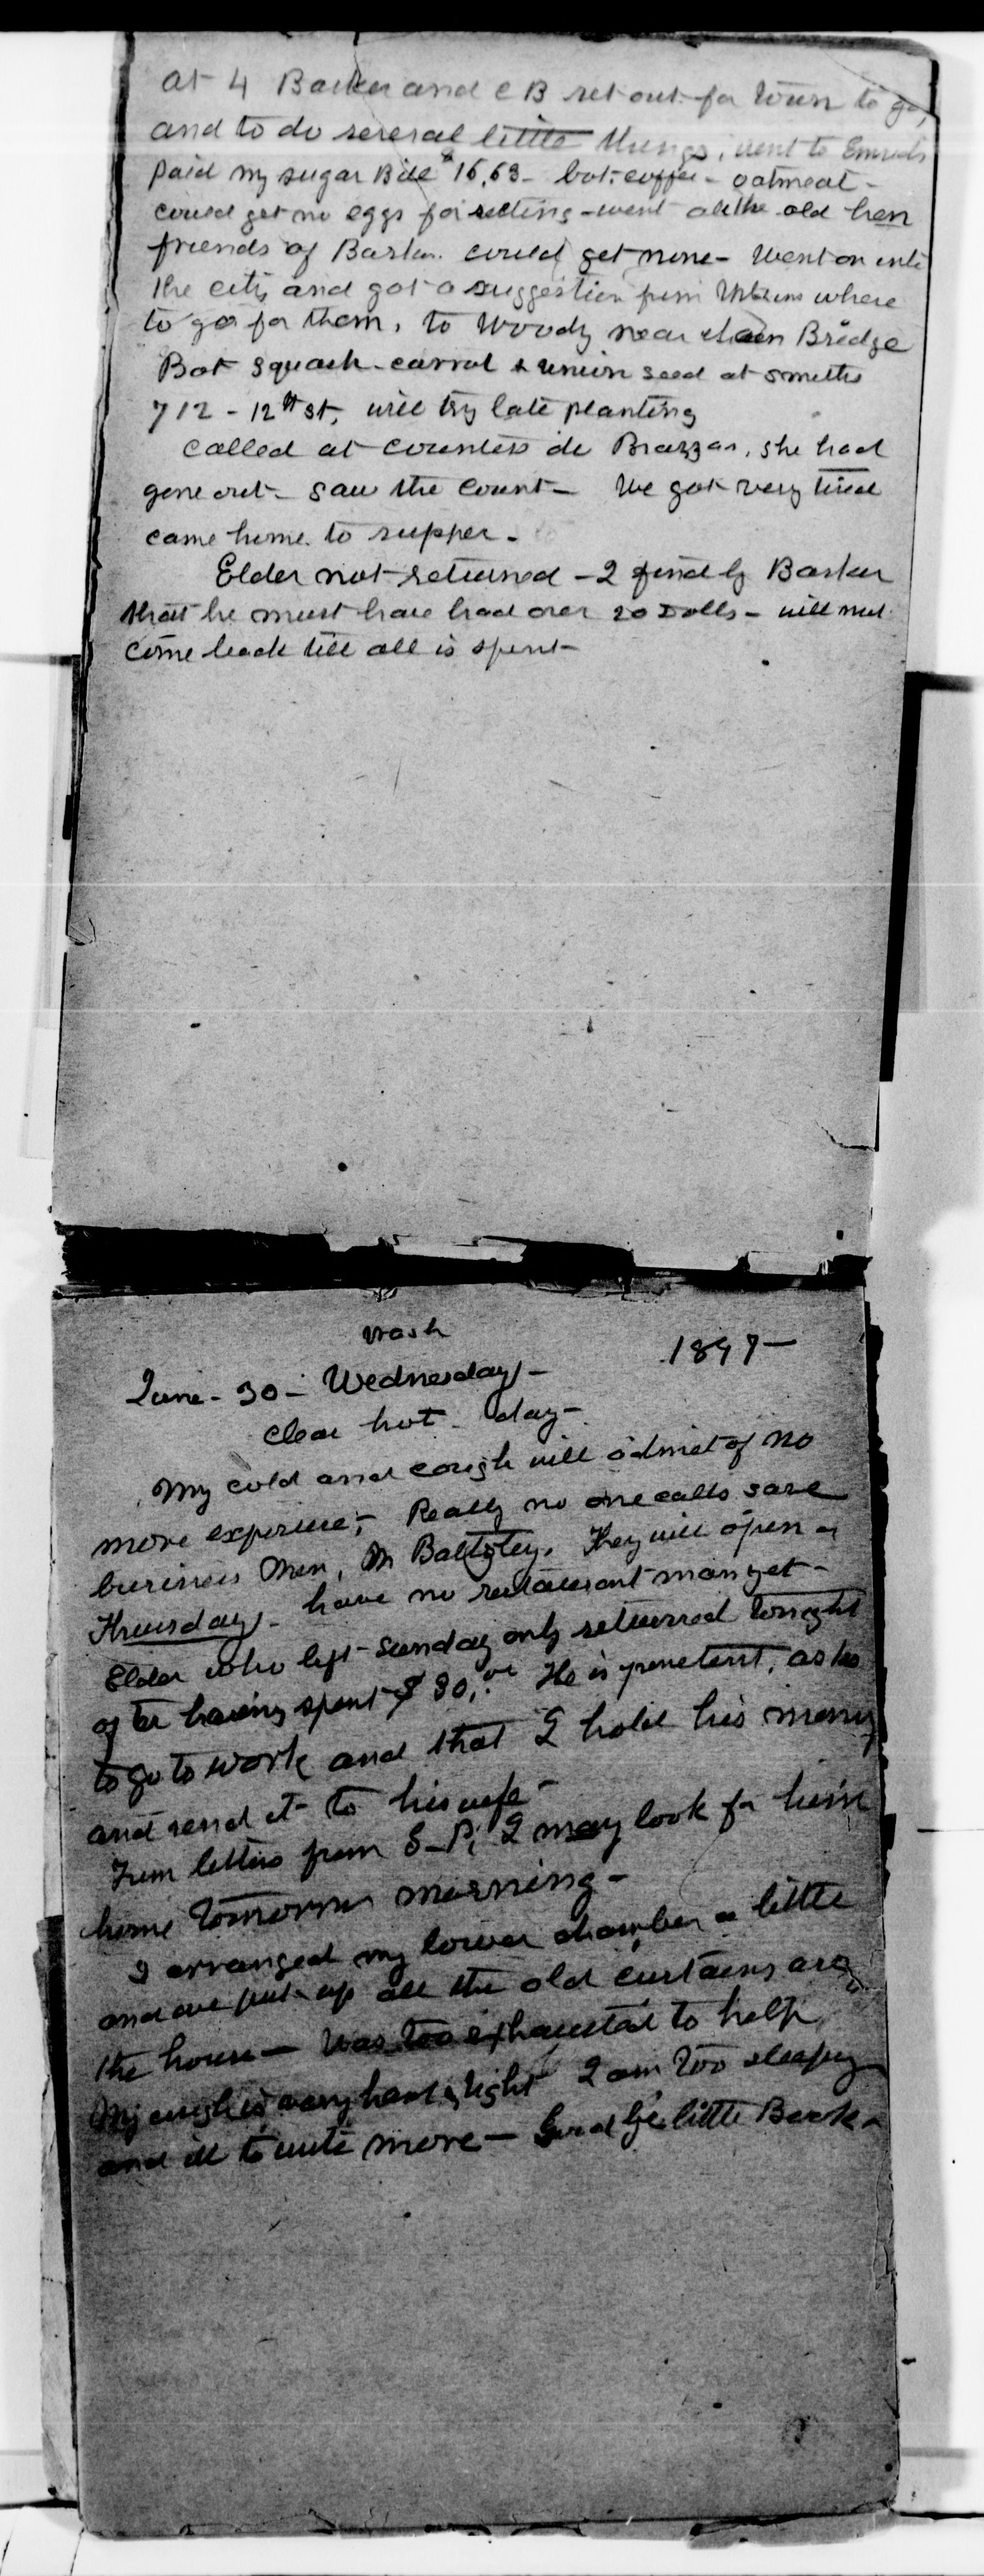 at 4 Barker and C B set out for town to go,
and to do several little things, went to Emrichs
paid my sugar Bill $16.63 - bot. coffee - oatmeal -
could get no eggs for setting - went all the old hen
friends of Barker. could get none - Went on into
the city and got a suggestion from where
to go for them, to Woody near chain Bridge
Bot squash - carrot & onion seed at smiths
712 - 12th st, will try late planting
called at Countess de Brazzas, she had
gone out - saw the Count - We got very tired
came home to supper -
Elder not returned - I find by Barker
that he must have had over 20 Dolls - will not
come back till all is spent -
Wash
June - 30 - Wednesday - 1897 -
clear hot - day -
My cold and cough will admit of no
more exposure, - Really no one calls save
business men, Mr Baltzley. They will open on
Thursday - have no restaurant man yet -
Elder who left Sunday only returned tonight
after having spent $30.00 He is penetent, asks
to go to work and that I hold his money
and send it to his wife -
From letters from S - P, I may look for him
home tomorrow morning -
I arranged my lower chamber a little
and we put up all the old curtains
the house - Was too exhausted to help
My cough is very hard & tight I am too sleepy
and ill to write more - Good bye little Book -